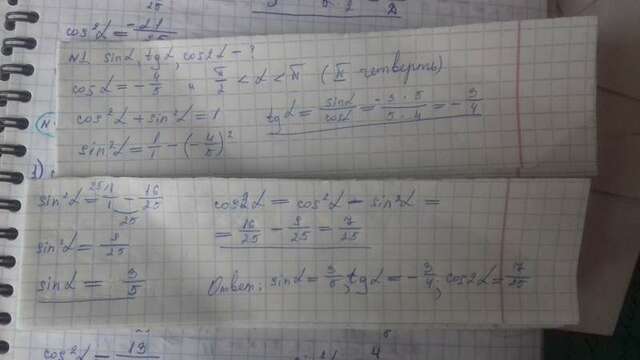 cos²α = -21/25
N1. sinα, tgα, cos2α - ?
cosα = -4/5, π/2 < α < π (II четверть)
cos²α + sin²α = 1
tgα = sinα/cosα = -3·5/5·4 = -3/4
sin²α = 1/1 - (-4/5)²
sin²α = 25\1/1 - 16/25
25
sin²α = 9/25
sinα = 3/5
cos2α = cos²α - sin²α =
= 16/25 - 9/25 = 7/25
Ответ: sinα = 3/5, tgα = -3/4; cos2α = 7/25
cos²α = 19